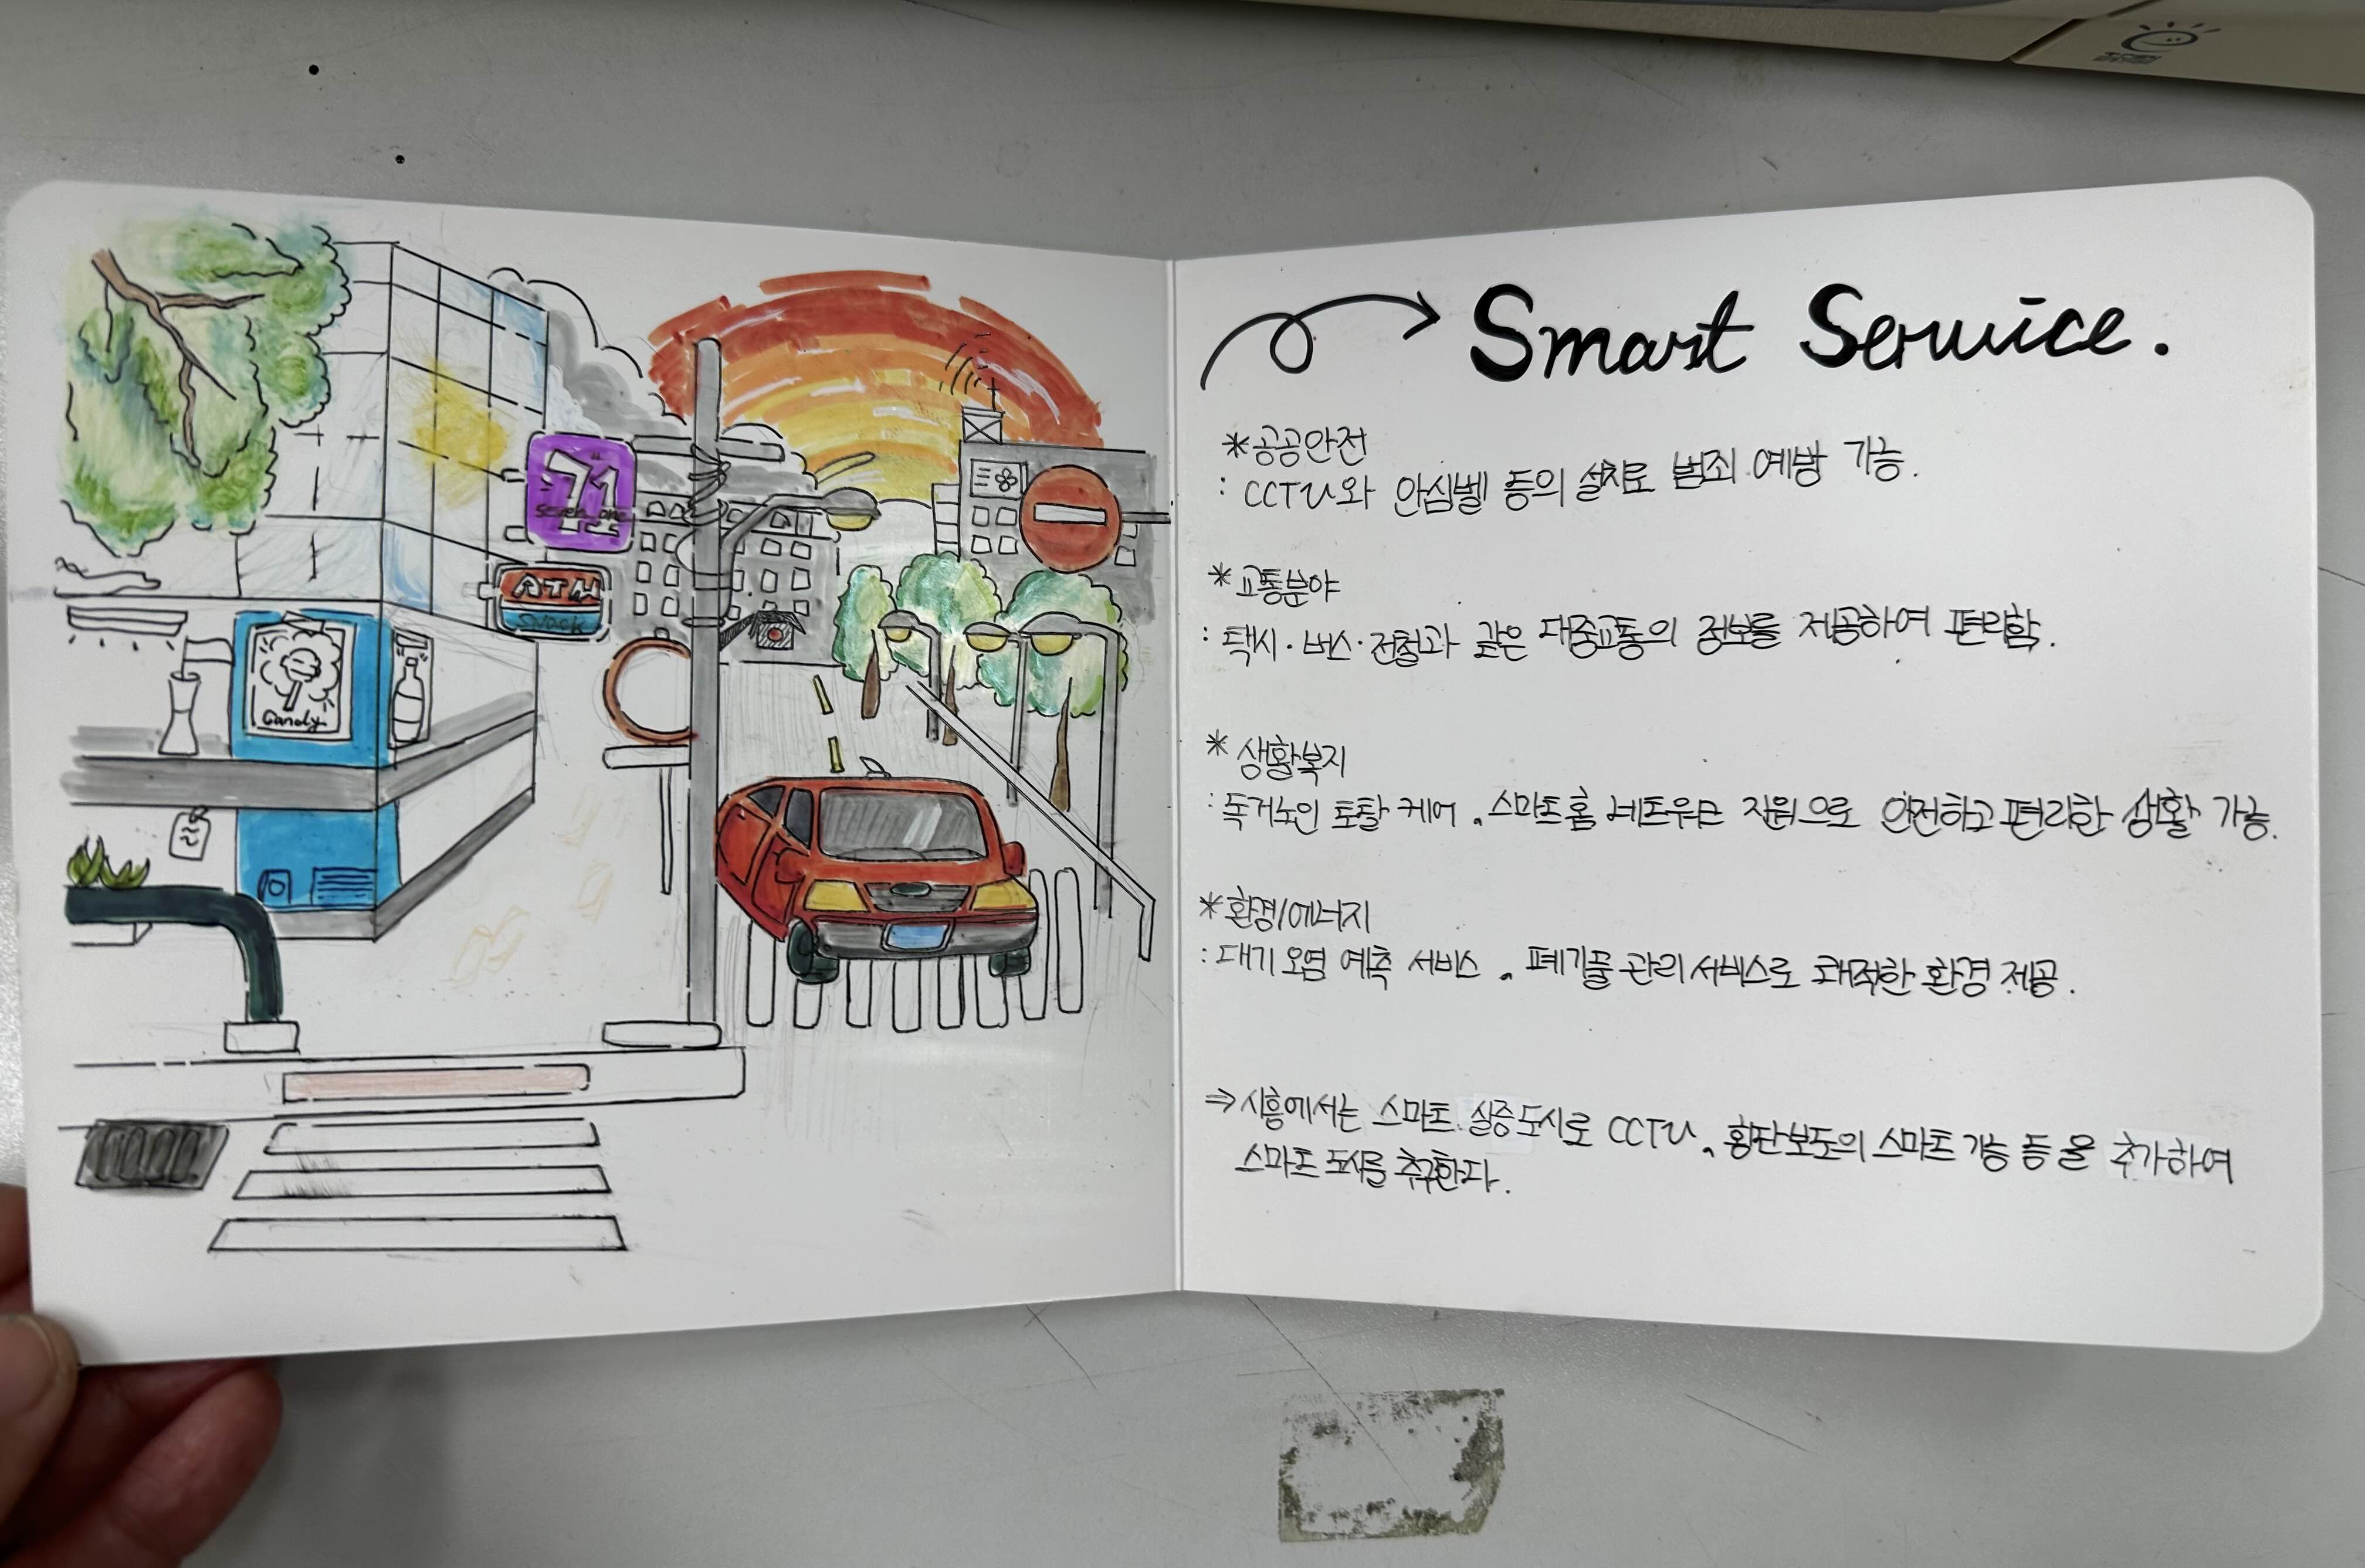 71
seven one
ATM
SNACK
Candy
Smart Service.
*공공안전
: CCTV와 안심벨 등의 설치로 범죄 예방 가능.
*교통분야
: 택시·버스·전철과 같은 대중교통의 정보를 제공하여 편리함.
*생활복지
: 독거노인 토탈 케어, 스마트홈 네트워크 지원으로 안전하고 편리한 생활 가능.
*환경/에너지
: 대기 오염 예측 서비스, 폐기물 관리 서비스로 쾌적한 환경 제공.
⇒ 시흥에서는 스마트 실증도시로 CCTV, 횡단보도의 스마트 기능 등을 추가하여
스마트 도시를 추구한다.